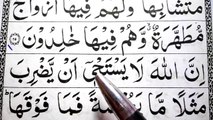 مُتَشَابِهًا وَلَهُمْ فِيْهَا اَزْوَاجٌ
مُّطَهَّرَةٌ وَّهُمْ فِيْهَا خٰلِدُوْنَ
اِنَّ اللّٰهَ لَا يَسْتَحْيٖٓ اَنْ يَّضْرِبَ
مَثَلًا مَّا فَمَا فَوْقَهَا